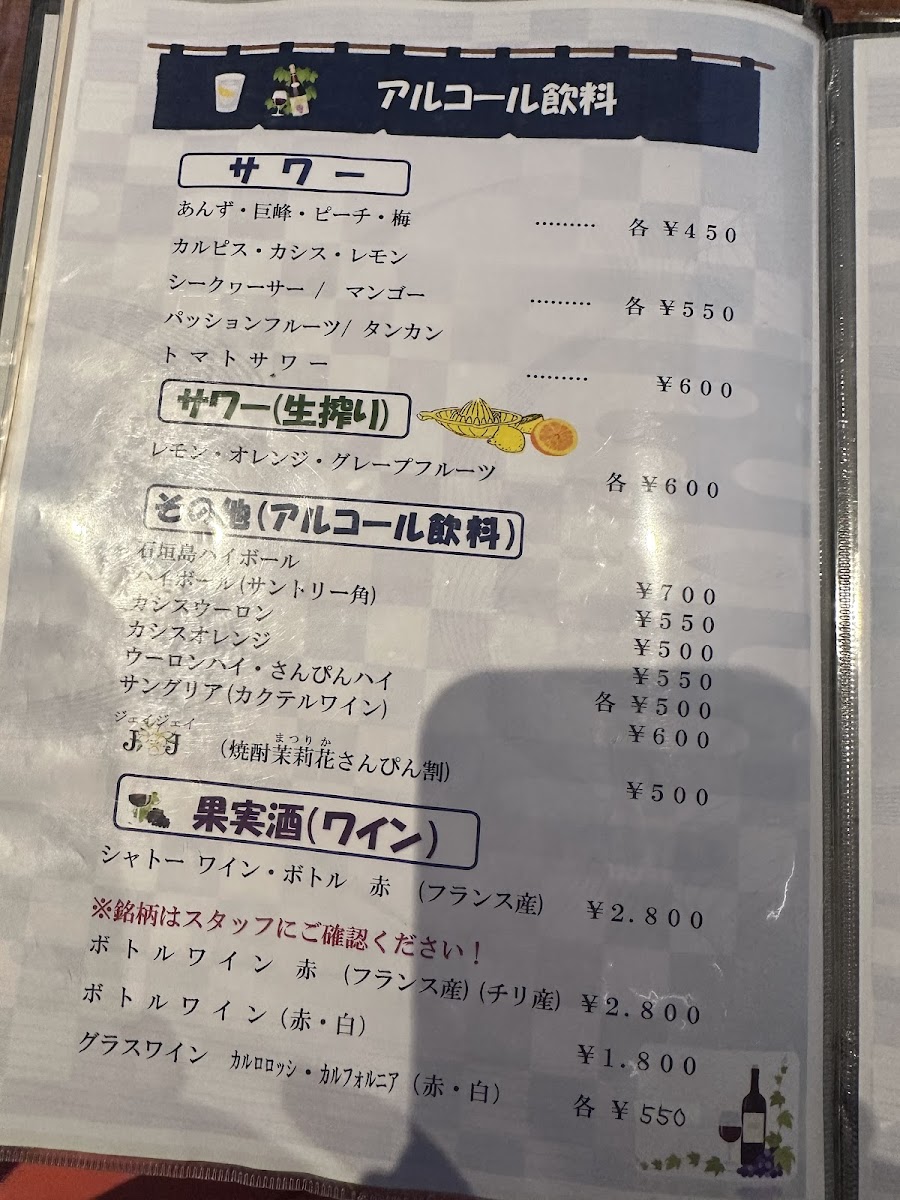 アルコール飲料
サワー
あんず・巨峰・ピーチ・梅 ……… 各 ¥450
カルピス・カシス・レモン
シークヮーサー / マンゴー ……… 各 ¥550
パッションフルーツ/ タンカン
トマトサワー ……… ¥600
サワー(生搾り)
レモン・オレンジ・グレープフルーツ 各 ¥600
その他(アルコール飲料)
石垣島ハイボール ¥700
ハイボール(サントリー角) ¥550
カシスウーロン ¥500
カシスオレンジ ¥550
ウーロンハイ・さんぴんハイ 各 ¥500
サングリア(カクテルワイン) ¥600
ジェイジェイ まつりか
J J (焼酎茉莉花さんぴん割) ¥500
果実酒(ワイン)
シャトー ワイン・ボトル 赤 (フランス産) ¥2.800
※銘柄はスタッフにご確認ください!
ボトルワイン 赤 (フランス産) (チリ産) ¥2.800
ボトルワイン (赤・白) ¥1.800
グラスワイン カルロロッシ・カルフォルニア (赤・白) 各 ¥550